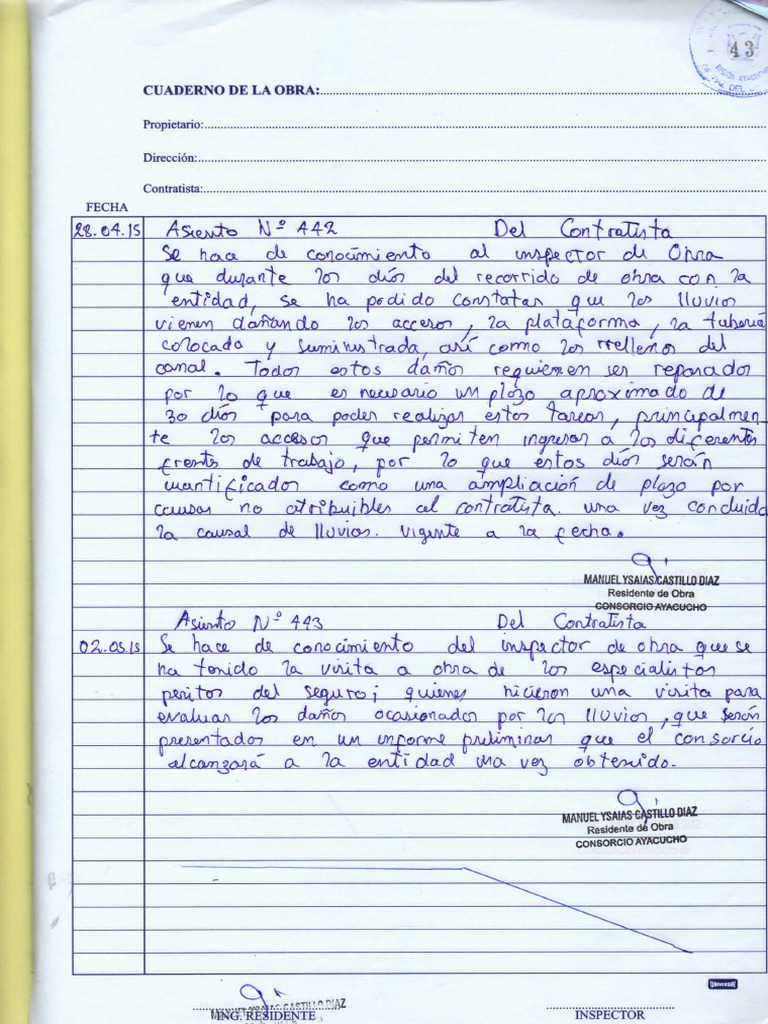 43
CUADERNO DE LA OBRA:
Propietario:
Dirección:
Contratista:
FECHA
28.04.15 Asiento Nº 442 Del Contratista
Se hace de conocimiento al inspector de Obra
que durante los días del recorrido de obra con la
entidad, se ha podido constatar que las lluvias
vienen dañando los accesos, la plataforma, la tubería
colocada y suministrada, así como los rrellenos del
canal. Todos estos daños requieren ser reparados
por lo que es necesario un plazo aproximado de
30 días para poder realizar estas tareas, principalmen
te los accesos que permiten ingresar a los diferentes
frentes de trabajo, por lo que estos días serán
cuantificados como una ampliación de plazo por
causas no atribuibles al contratista. una vez concluida
la causal de lluvias. vigente a la fecha.
MANUEL YSAIAS CASTILLO DIAZ
Residente de Obra
CONSORCIO AYACUCHO
Asiento Nº 443 Del Contratista
02.05.15 Se hace de conocimiento del inspector de obra que se
ha tenido la visita a obra de los especialistas
peritos del seguro; quienes hicieron una visita para
evaluar los daños ocasionados por las lluvias, que serán
presentados en un informe preliminar que el consorcio
alcanzará a la entidad una vez obtenido.
MANUEL YSAIAS CASTILLO DIAZ
Residente de Obra
CONSORCIO AYACUCHO
UNIVERSAL
MANUEL YSAIAS CASTILLO DIAZ
ING. RESIDENTE INSPECTOR